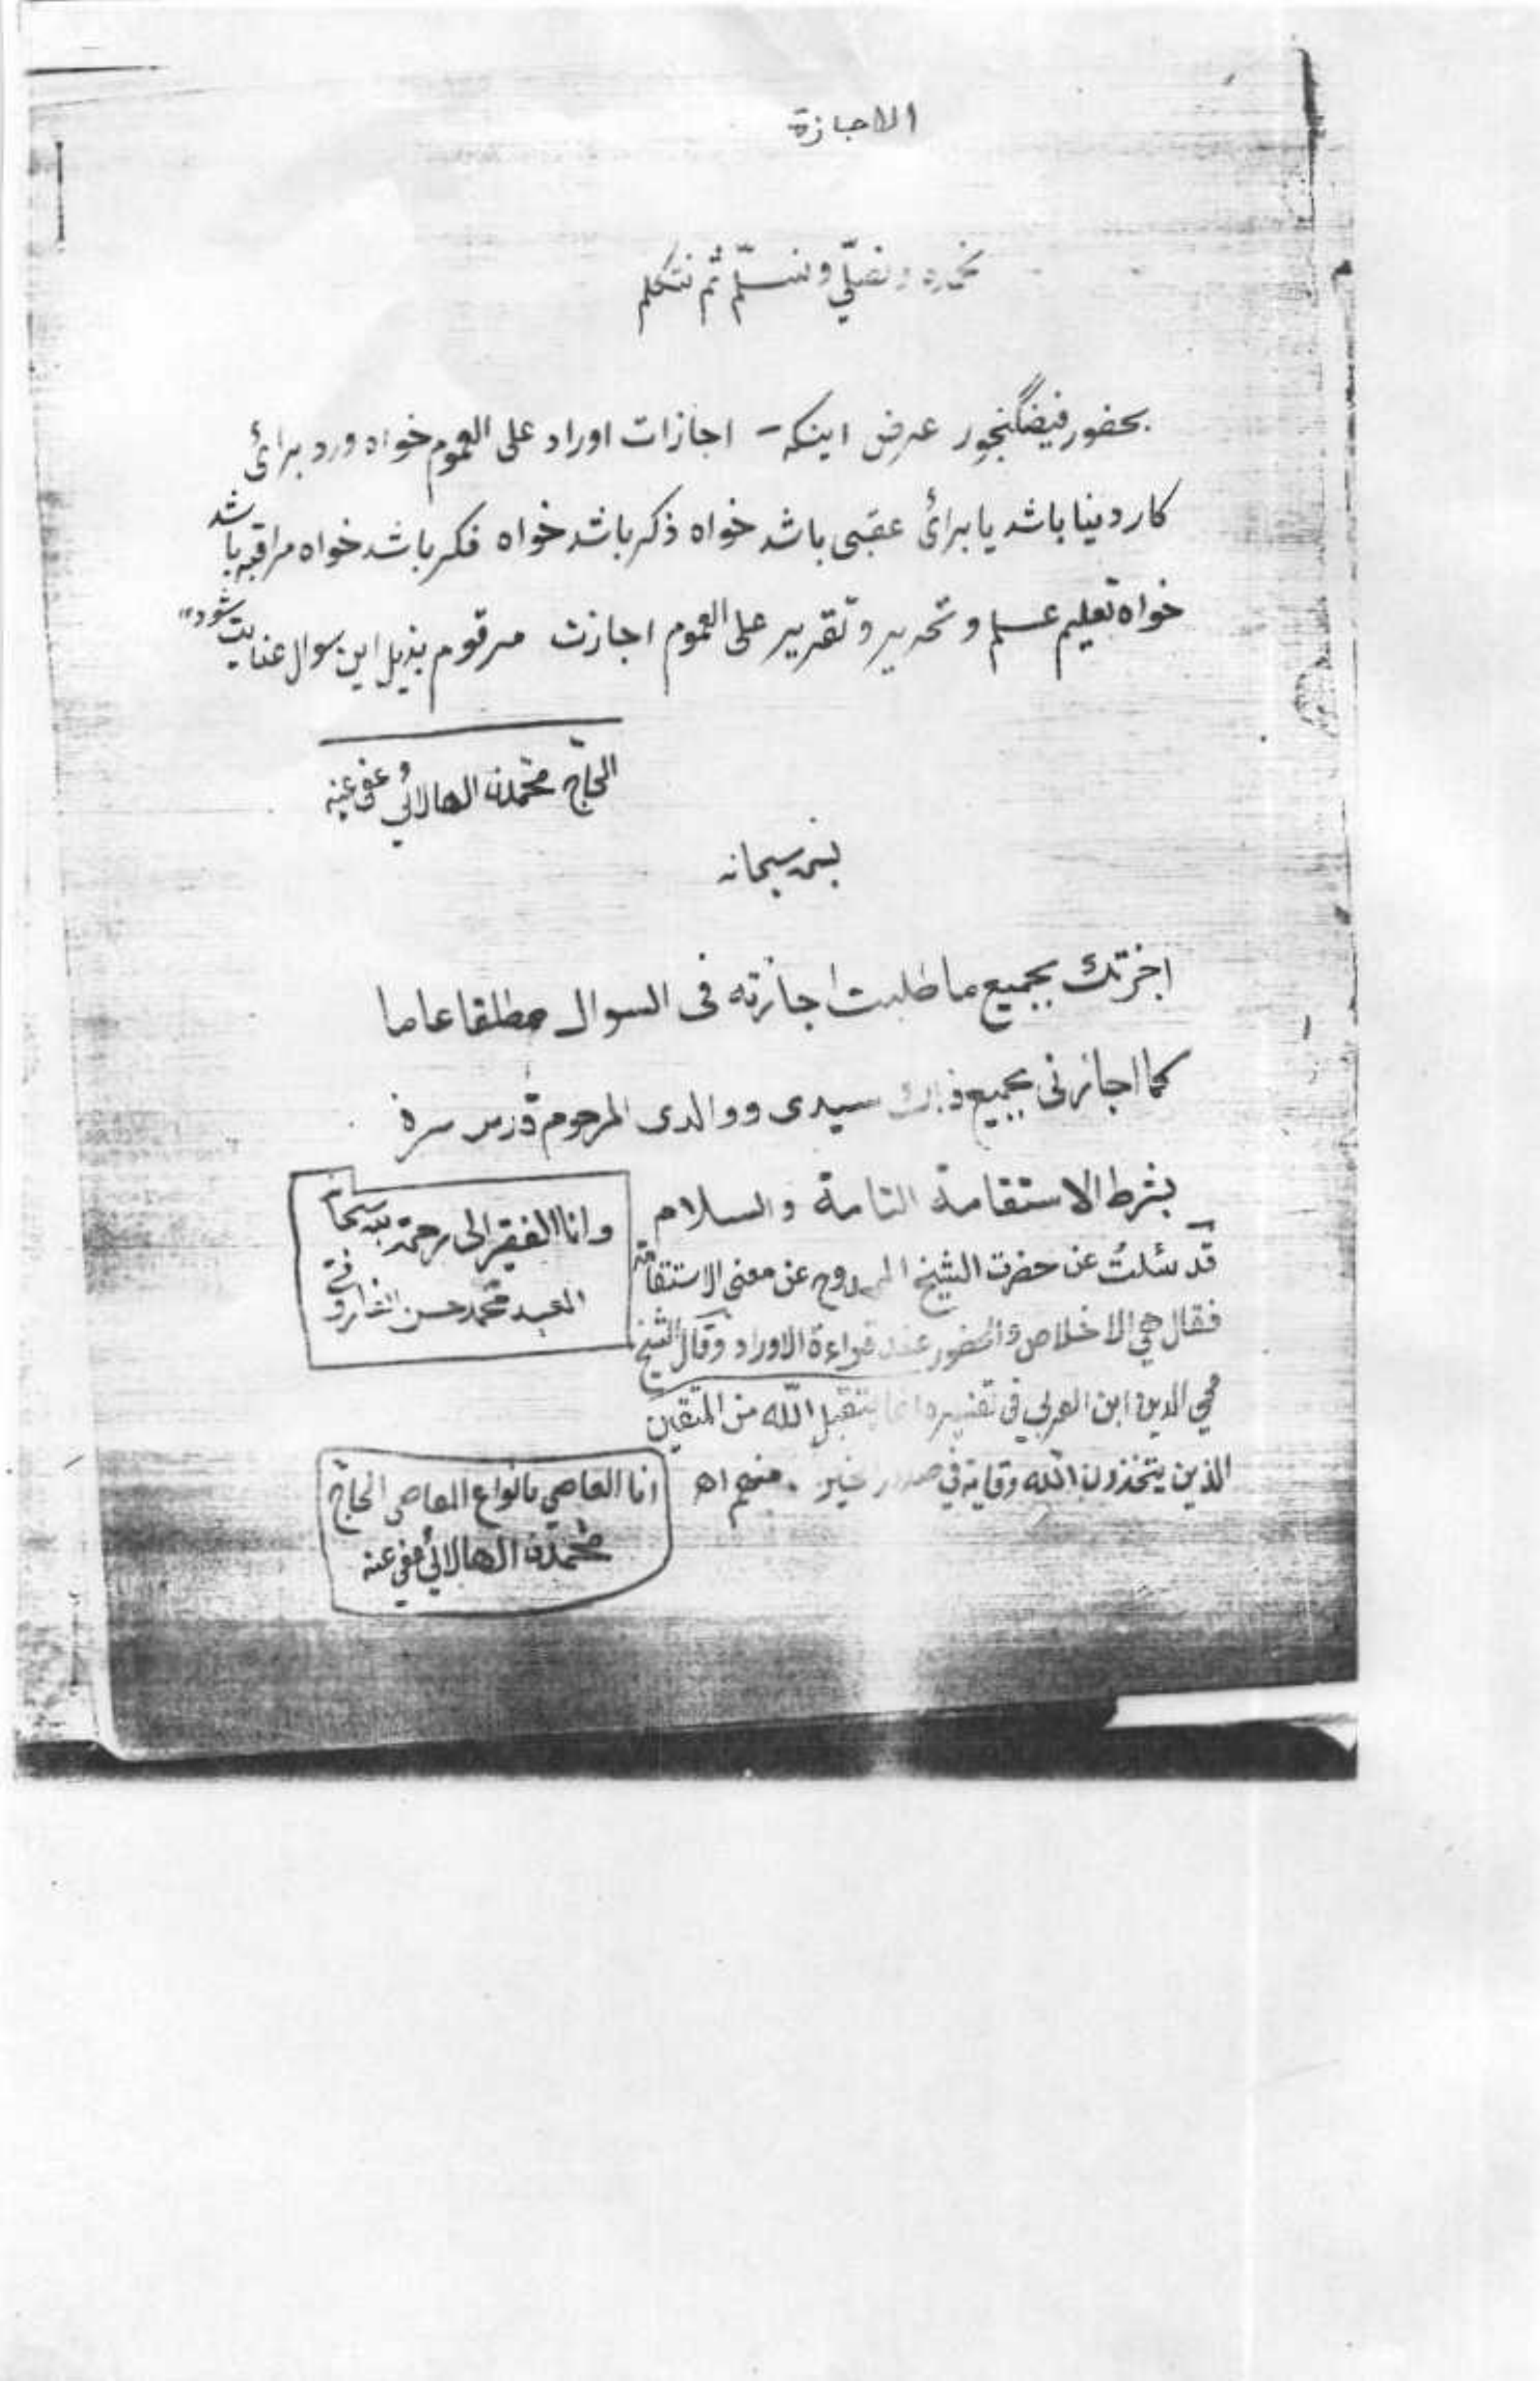 الاجازة
نحمده ونصلّي ونسلّم ثم نتكلم
بحضور فيضگنجور عرض اینکه - اجازات اوراد علی العموم خواه ورد برائ
کار دینا باشد یا برائ عقبی باشد خواه ذکر باشد خواه فکر باشد خواه مراقبه باشد
خواه تعلیم علم و تحریر و تقریر علی العموم اجازت مرقوم بذیل این سوال عنایت شود"
الحاج محمدن الهالائي عفي عنه
بسمه سبحانه
اجزتك بجميع ما طلبت اجازته فى السوال مطلقا عاما
كما اجازنى بجميع ذلك سيدى ووالدى المرحوم قدس سره
بشرط الاستقامة التامة والسلام
وانا الفقير الى رحمة سبحانه
العبد محمد حسن الفاروقي
قد سئلتُ عن حضرت الشيخ الممدوح عن معنى الاستقامة
فقال هي الاخلاص والحضور عند قراءة الاوراد وقال الشيخ
محي الدين ابن العربي في تفسيره انما يتقبل الله من المتقين
الذين يتخذون الله وقاية في صدور منهم اھ
انا العاصي بانواع المعاصى الحاج
محمدن الهالائي عفي عنه